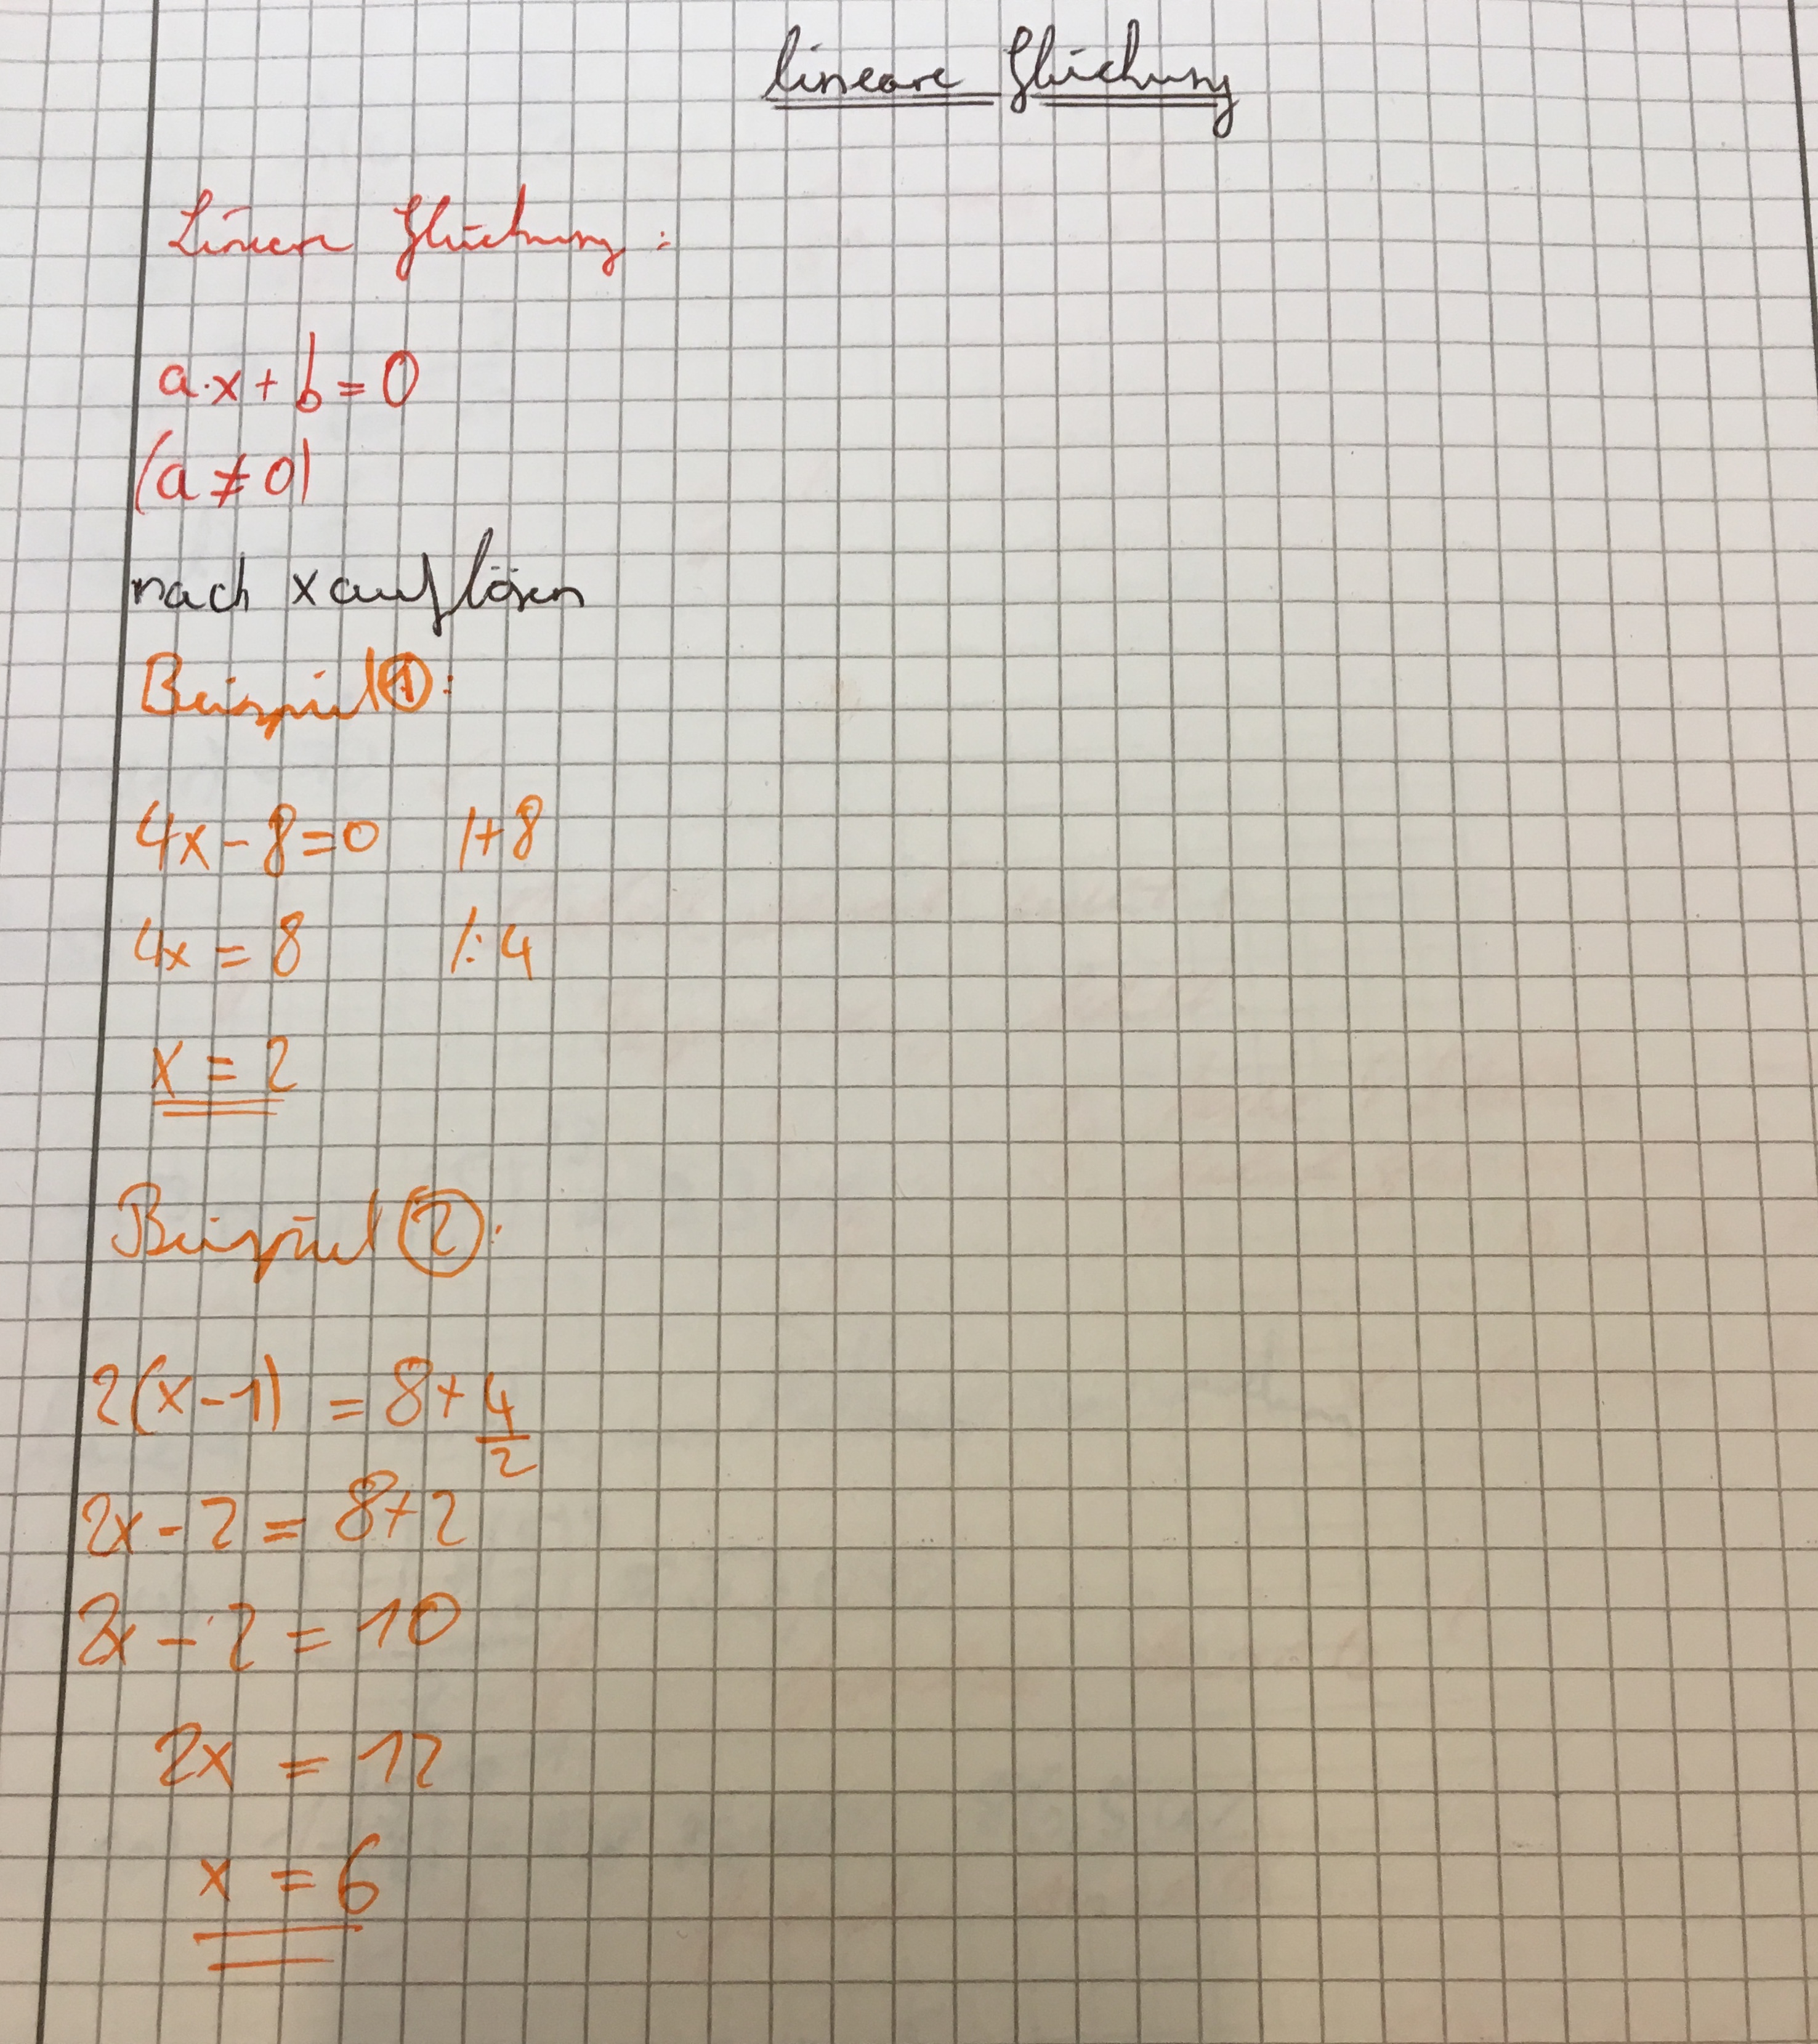 lineare Gleichung
Lineare Gleichung:
a·x+b=0
(a≠0)
nach x auflösen
Beispiel ①:
4x-8=0 |+8
4x=8 |:4
x=2
Beispiel ②:
2(x-1) = 8+4/2
2x-2=8+2
2x-2=10
2x=12
x=6